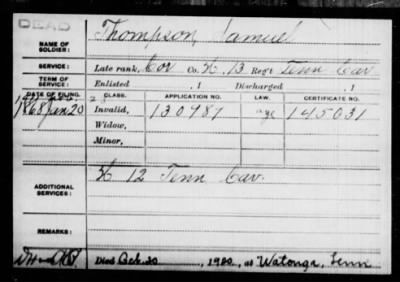 DEAD
NAME OF SOLDIER: Thompson, Samuel
SERVICE: Late rank, Cor Co. H, 13 Reg't Tenn Cav
TERM OF SERVICE: Enlisted , 1 Discharged , 1
DATE OF FILING. CLASS. APPLICATION NO. LAW. CERTIFICATE NO.
1868 Jan 20 Invalid, 130987 145031
Widow,
Minor,
ADDITIONAL SERVICES: H 12 Tenn Cav.
REMARKS:
Died Oct. 20, 1920, at Watauga, Tenn